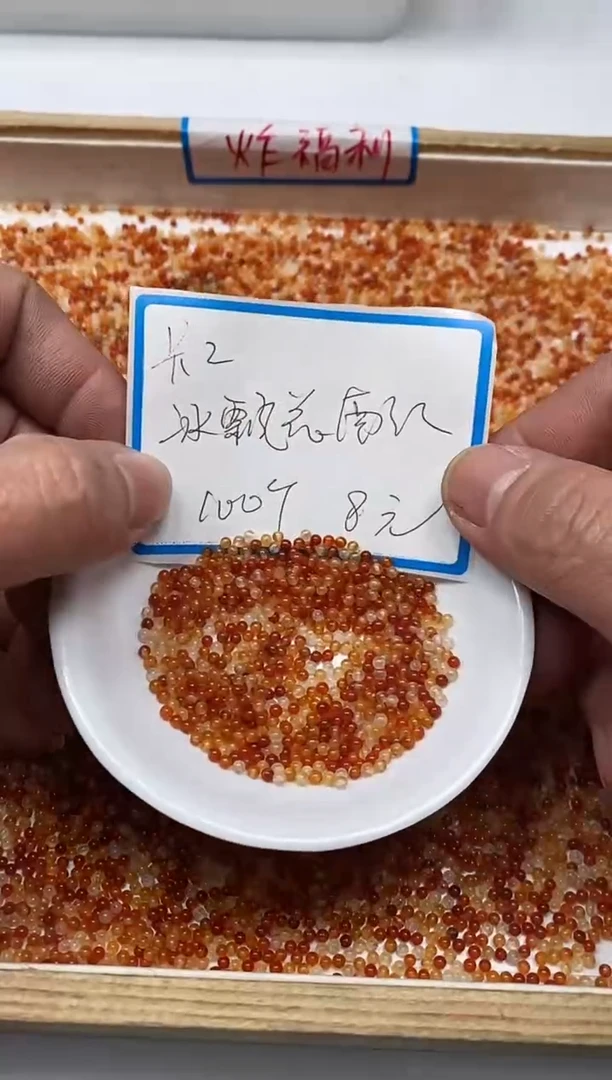 炸福利
卡2
冰飘花南红
100个 8元